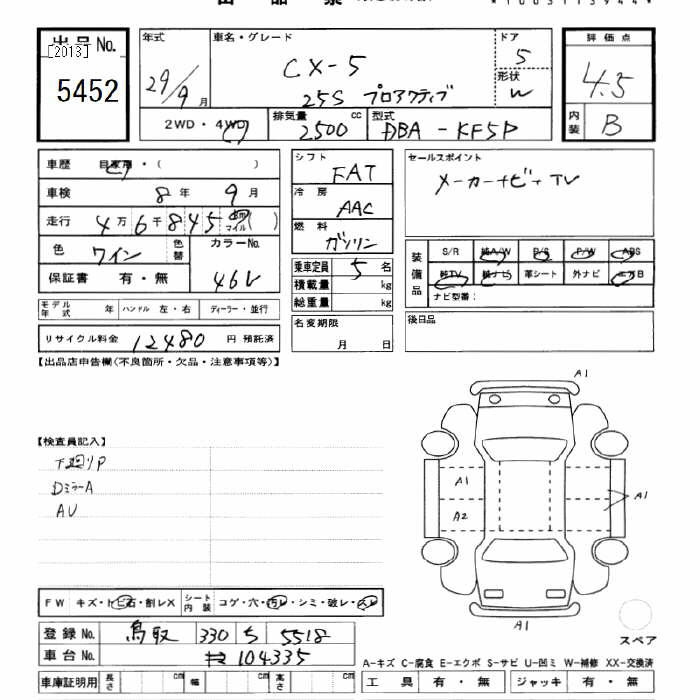 出品No. [2013] 5452
年式 29/9月
車名・グレード CX-5
25S プロアクティブ
ドア 5
形状 W
評価点 4.5
内装 B
2WD・4WD
排気量 2500 cc
型式 DBA-KF5P
車歴 自家用・( )
車検 8年 9月
走行 4万6千845 km マイル ( )
色 ワイン 色替
カラーNo. 46V
保証書 有・無
モデル年式 年 ハンドル 左・右 ディーラー・並行
リサイクル料金 12480 円 預託済
シフト FAT
冷房 AAC
燃料 ガソリン
乗車定員 5 名
積載量 kg
総重量 kg
名変期限 月 日
セールスポイント
メーカーナビ+TV
装備品 S/R 純A/W P/S P/W ABS
純TV 純ナビ 革シート 外ナビ エアB
ナビ型番:
後日品
【出品店申告欄(不良箇所・欠品・注意事項等)】
【検査員記入】
下廻りP
DミラーA
AU
A1
A1
A2
A1
A1
スペア
FW キズ・トビ石・割レX シート内装 コゲ・穴・汚レ・シミ・破レ・スレ
登録No. 鳥取 330 ち 5518
車台No. 104335
車庫証明用 長さ cm 幅 cm 高さ cm
A-キズ C-腐食 E-エクボ S-サビ U-凹ミ W-補修 XX-交換済
工具 有・無 ジャッキ 有・無